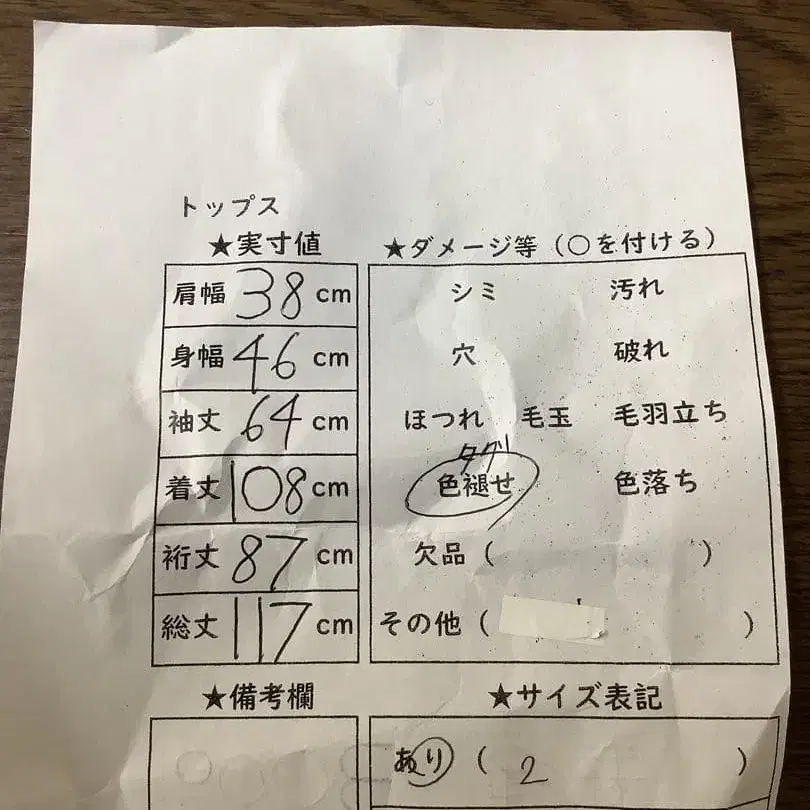 トップス
★実寸値
肩幅 38 cm
身幅 46 cm
袖丈 64 cm
着丈 108 cm
裄丈 87 cm
総丈 117 cm
★備考欄
★ダメージ等（○を付ける）
シミ 汚れ
穴 破れ
ほつれ 毛玉 毛羽立ち
タグ
色褪せ 色落ち
欠品（ ）
その他（ ）
★サイズ表記
あり（ 2 ）